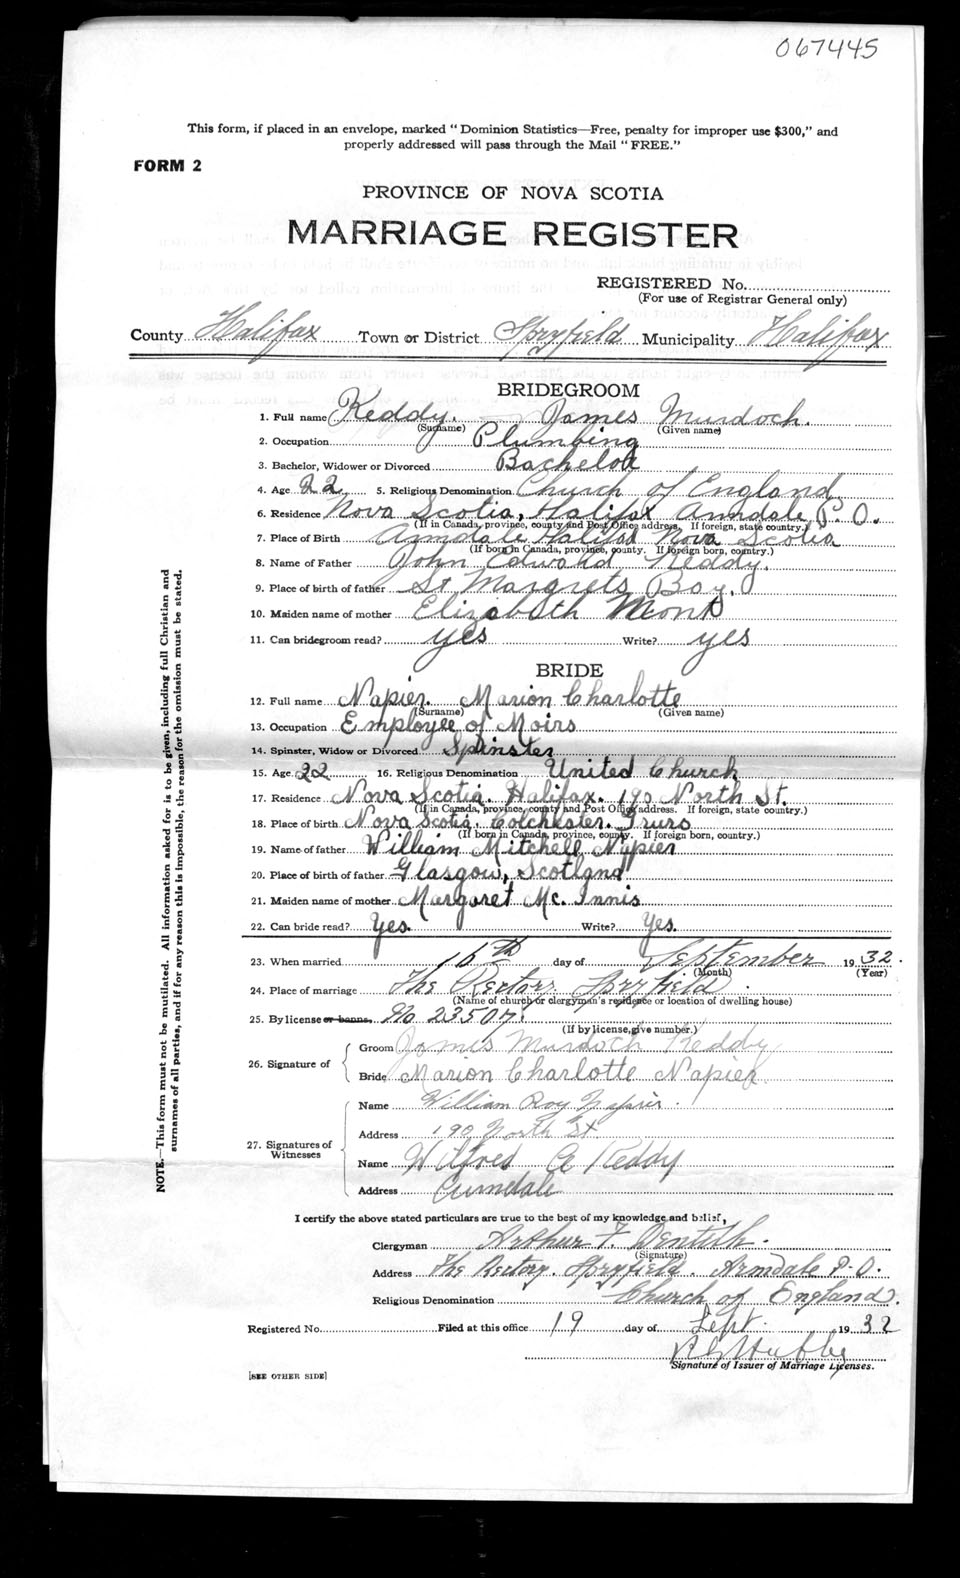 067445
This form, if placed in an envelope, marked "Dominion Statistics—Free, penalty for improper use $300," and
properly addressed will pass through the Mail "FREE."
FORM 2
PROVINCE OF NOVA SCOTIA
MARRIAGE REGISTER
REGISTERED No.
(For use of Registrar General only)
County Halifax Town or District Spryfield Municipality Halifax
BRIDEGROOM
1. Full name Reddy. James Murdoch.
(Surname) (Given name)
2. Occupation Plumbing
3. Bachelor, Widower or Divorced Bachelor
4. Age 22 5. Religious Denomination Church of England
6. Residence Nova Scotia, Halifax Armdale P.O.
(If in Canada, province, county and Post Office address. If foreign, state country.)
7. Place of Birth Armdale Halifax Nova Scotia
(If born in Canada, province, county. If foreign born, country.)
8. Name of Father John Edward Reddy.
9. Place of birth of father St Margrets Bay.
10. Maiden name of mother Elizabeth Mont
11. Can bridegroom read? yes Write? yes
BRIDE
12. Full name Napier. Marion Charlotte
(Surname) (Given name)
13. Occupation Employee of Moirs
14. Spinster, Widow or Divorced Spinster
15. Age 22 16. Religious Denomination United Church
17. Residence Nova Scotia. Halifax. 190 North St.
(If in Canada, province, county and Post Office address. If foreign, state country.)
18. Place of birth Nova Scotia. Colchester. Truro
(If born in Canada, province, county. If foreign born, country.)
19. Name of father William Mitchell Napier
20. Place of birth of father Glasgow, Scotland
21. Maiden name of mother Margaret Mc. Innis
22. Can bride read? Yes. Write? Yes.
23. When married 16th day of September 1932.
(Month) (Year)
24. Place of marriage The Rectory Spryfield.
(Name of church or clergyman's residence or location of dwelling house)
25. By license or banns. No 23507.
(If by license, give number.)
26. Signature of
Groom James Murdoch Reddy
Bride Marion Charlotte Napier
27. Signatures of Witnesses
Name William Roy Napier.
Address 190 North St.
Name Wilfred A Reddy
Address Armdale
I certify the above stated particulars are true to the best of my knowledge and belief,
Clergyman Arthur F.
(Signature)
Address The Rectory. Spryfield. Armdale P.O.
Religious Denomination Church of England.
Registered No. Filed at this office 19 day of Sept. 1932
Signature of Issuer of Marriage Licenses.
[SEE OTHER SIDE]
NOTE.—This form must not be mutilated. All information asked for is to be given, including full Christian and
surnames of all parties, and if for any reason this is impossible, the reason for the omission must be stated.